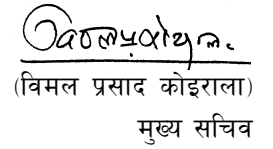 (विमल प्रसाद कोइराला)
मुख्य सचिव